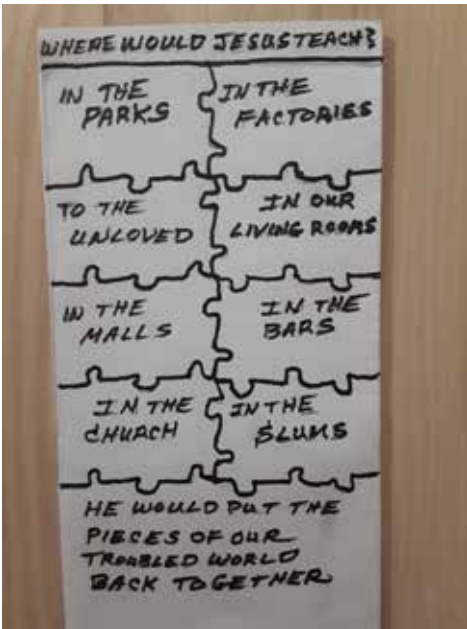 WHERE WOULD JESUS TEACH?
IN THE
PARKS
IN THE
FACTORIES
TO THE
UNLOVED
IN OUR
LIVING ROOMS
IN THE
MALLS
IN THE
BARS
IN THE
CHURCH
IN THE
SLUMS
HE WOULD PUT THE
PIECES OF OUR
TROUBLED WORLD
BACK TOGETHER